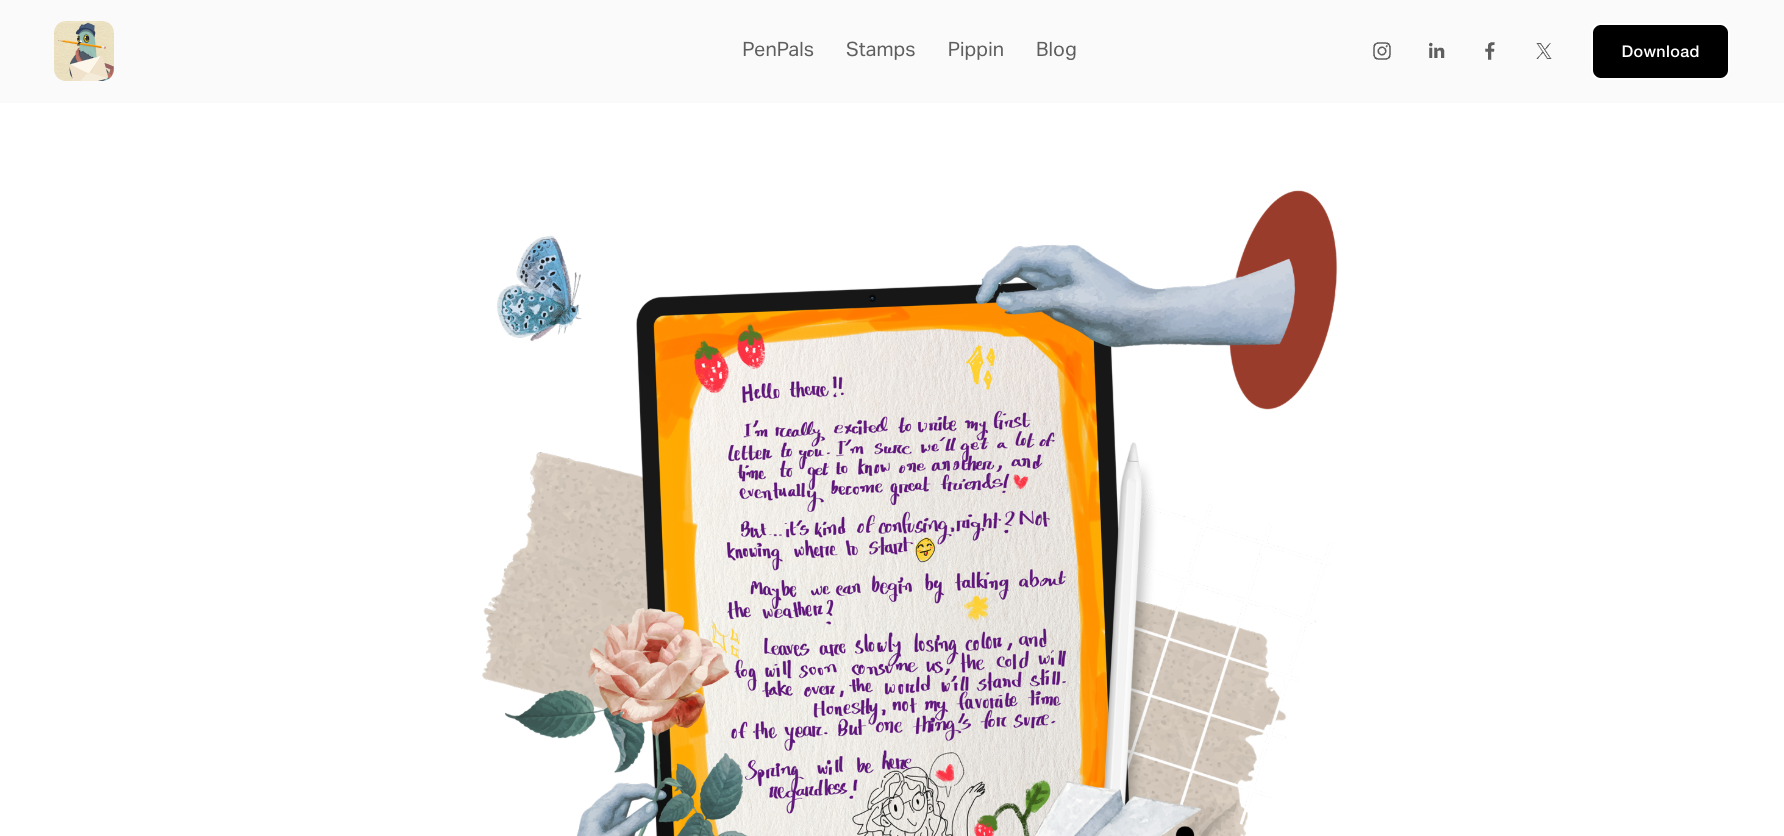 PenPals Stamps Pippin Blog Download
Hello there!!
I'm really excited to write my first
letter to you. I'm sure we'll get a lot of
time to get to know one another, and
eventually become great friends!
But...it's kind of confusing, right? Not
knowing where to start
Maybe we can begin by talking about
the weather?
Leaves are slowly losing color, and
fog will soon consume us, the cold will
take over, the world will stand still.
Honestly, not my favorite time
of the year. But one thing's for sure.
Spring will be here
regardless!